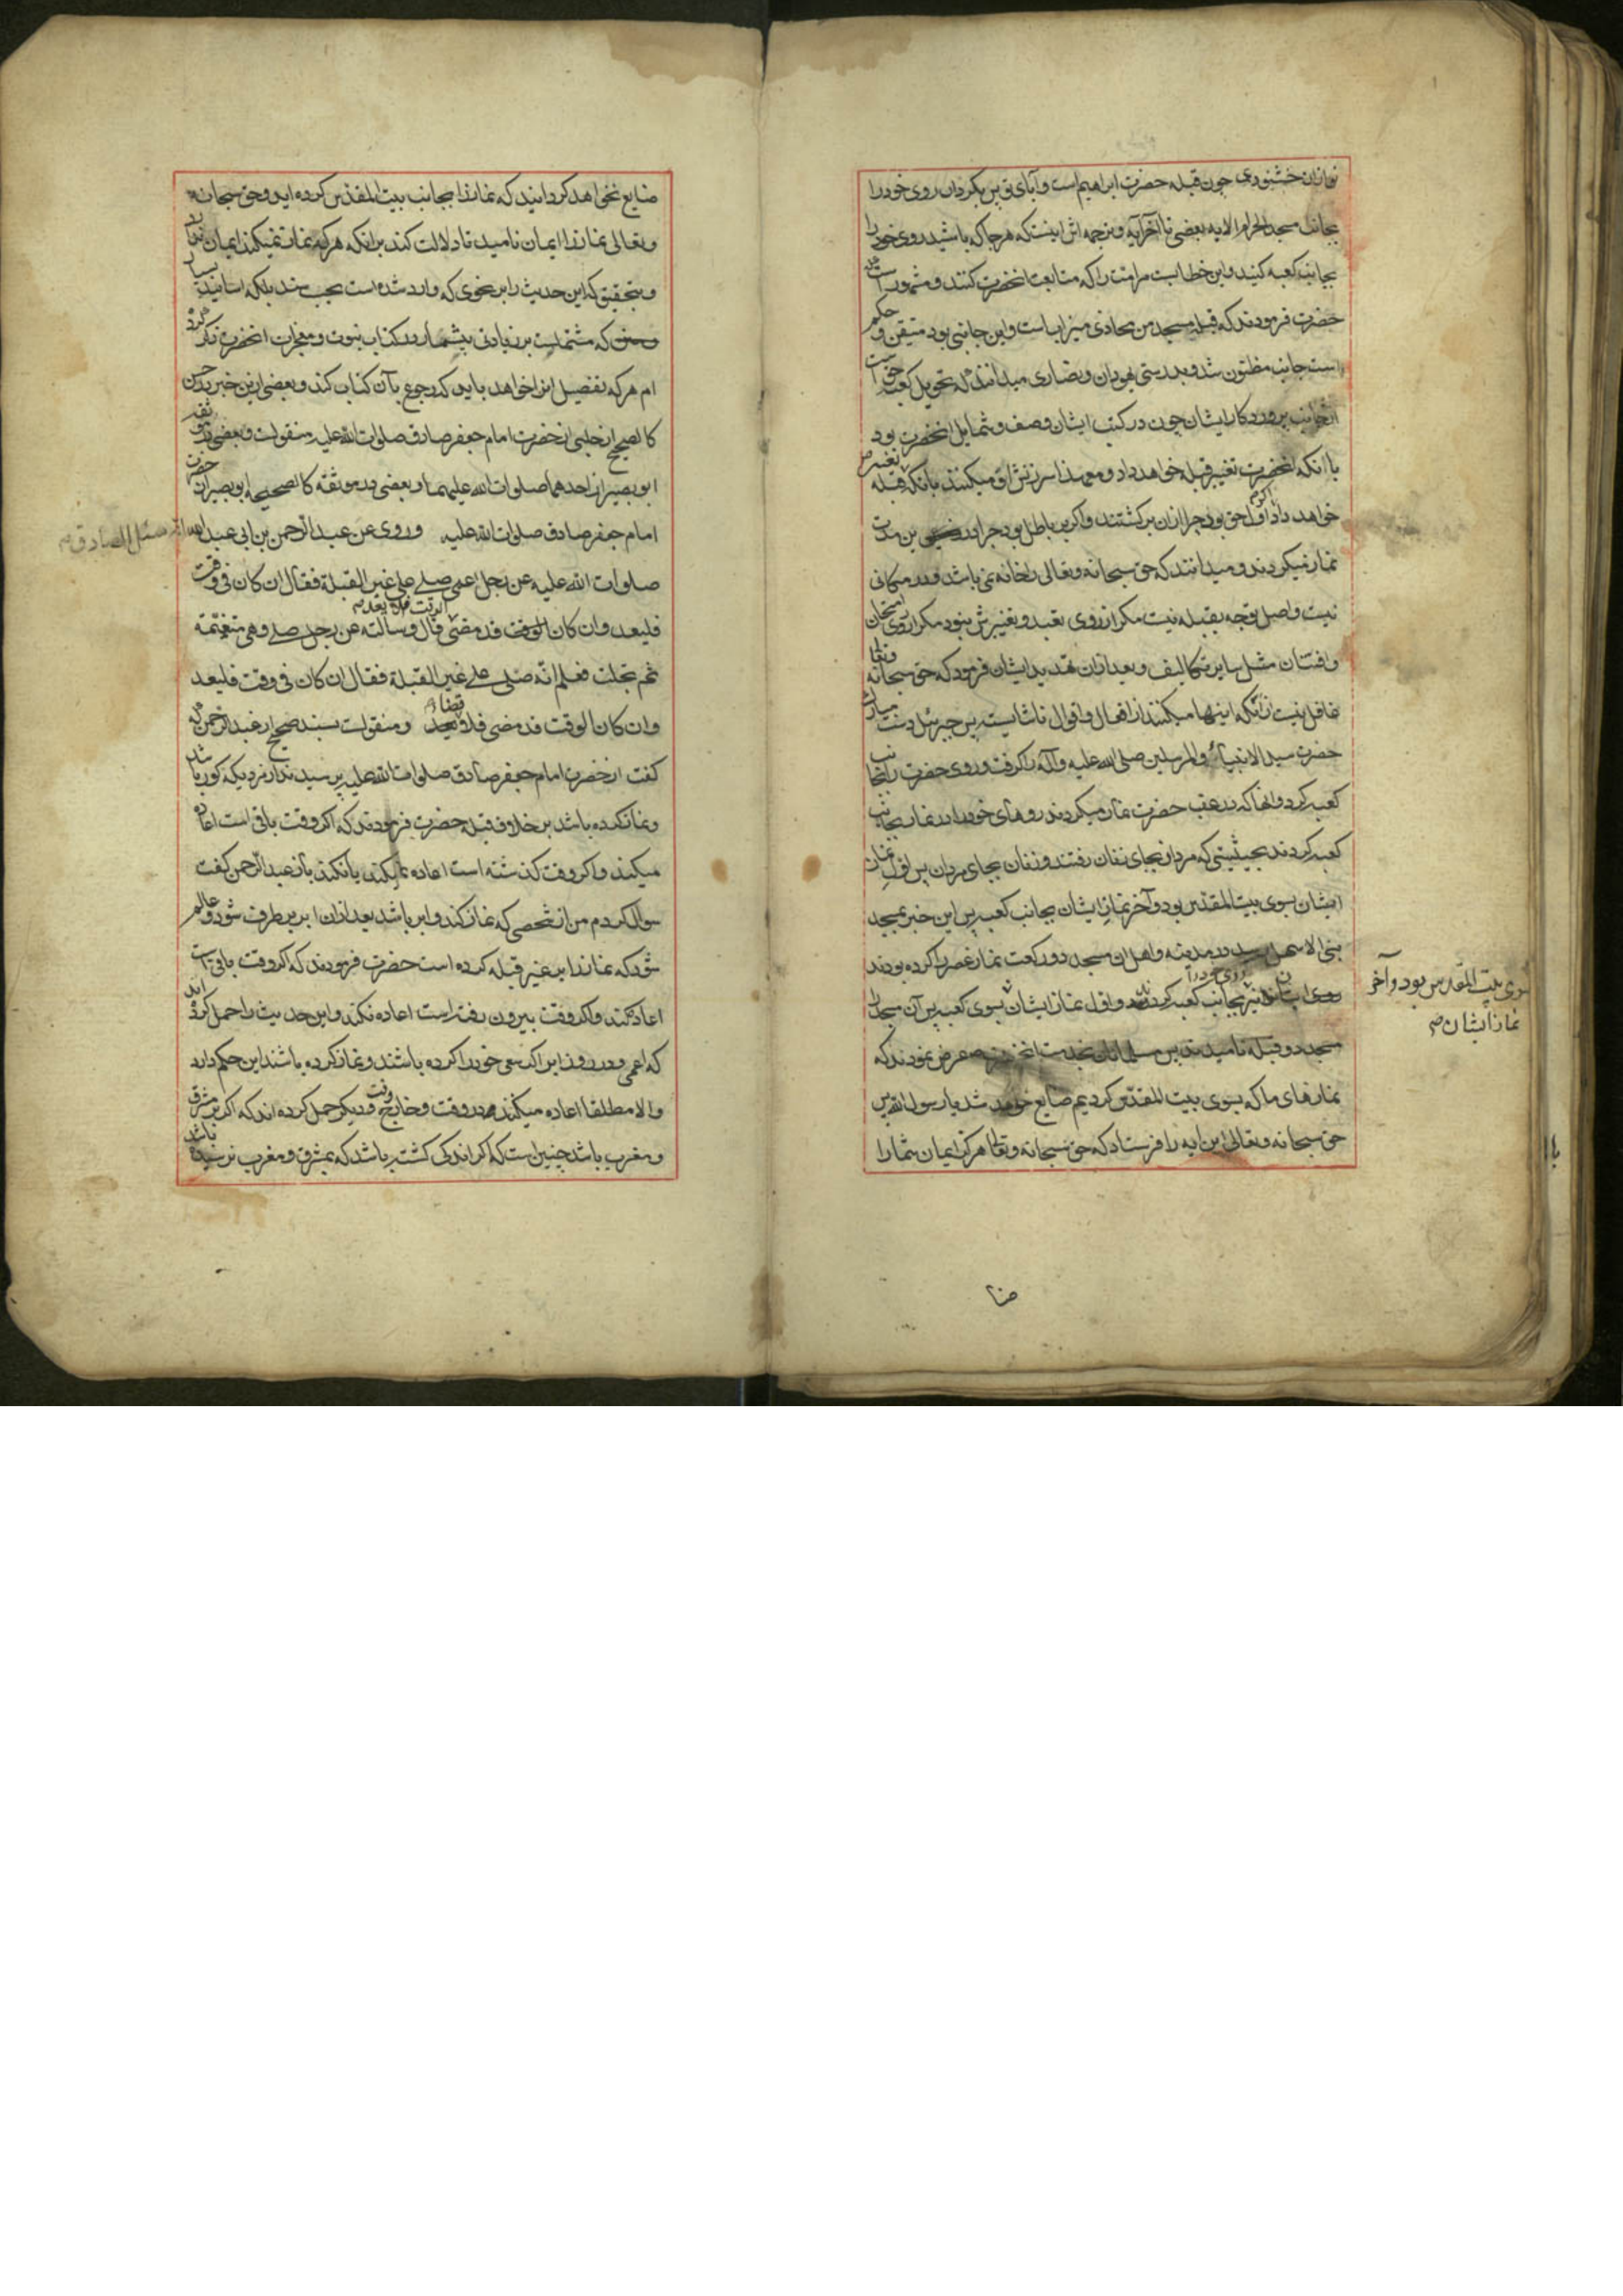 تو ازان خشنودی چون قبله حضرت ابراهیم است و آبای تو پس بگردان روی خود را
بجانب مسجد الحرام الایه یعنی تا آخر آیه و ترجمه اش اینست که هرجا که باشید روی خود را
بجانب کعبه کنید و این خطابست مر امت را که متابعت انحضرت کنند و مشهور است که
حضرت فرمودند که قبله مسجد من محاذی میزابست و این جانبی بود متیقن و حکم
است جانب مظنون شد و بدرستی یهودان و نصاری میدانند که تحویل کعبه حق است
ازجانب پروردکار ایشان چون در کتب ایشان وصف و شمایل انحضرت بود
با انکه انحضرت تغییر قبله خواهد داد و معهذا سرزنش او میکنند بانکه تغییر قبله
خواهد داد اگر اول حق بود چرا ازان برکشتند واکر باطل بود چرا درین مدت
نماز میکردند و میدانند که حق سبحانه و تعالی را خانه نمی باشد و در مکانی
نیست و اصل توجه بقبله نیست مکر از روی تعبد و تغییرش نبود مکر از روی امتحان
و افتتان مثل سایر تکالیف و بعد ازان تهدید ایشان فرمود که حق سبحانه وتعا
غافل نیست ازانکه اینها میکنند از افعال و اقوال ناشایسته پس جبرئیل دست مبارک
حضرت سید الانبیاء والمرسلین صلی الله علیه وآله را کرفت و روی حضرت را بجانب
کعبه کرد و انها که در عقب حضرت نماز میکردند روهای خود را در نماز بجانب
کعبه کردند بحیثیتی که مردان بجای زنان رفتند و زنان بجای مردان پس اول نماز
ایشان بسوی بیت المقدس بود و آخر نماز ایشان بجانب کعبه پس این خبر بمسجد
بنی الاسهل رسید در مدینه و اهل ان مسجد دو رکعت نماز عصر را کرده بودند
روی خود را نیز بجانب کعبه کردند و اول نماز ایشان بسوی کعبه پس آن مسجد را
بسوی بیت المقدس بود و آخر
نماز ایشان صح
مسجد دو قبله نامیدند پس مسلمانان بخدمت انحضرت عرض نمودند که
نمازهای ما که بسوی بیت المقدس کردیم ضایع خواهد شد یا رسول الله پس
حق سبحانه و تعالی این ایه را فرستاد که حق سبحانه وتعا هرکز ایمان شما را
ضا
ضایع نخواهد کردانید که نماز را بجانب بیت المقدس کرده اید و حق سبحانه
و تعالی نماز را ایمان نامید تا دلالت کند برانکه هرکه نماز نمیکند ایمان ندارد
و بتحقیق که این حدیث را بر نحوی که وارد شده است بحسب سند بلکه اسانید بسیار
و متن که مشتملست بر زیادتی بیشمار در کتاب نبوت و معجزات انحضرت ذکر کرده
ام هرکه تفصیل انرا خواهد باید که رجوع بآن کتاب کند و بعضی ازین خبر بدرحسن
کالصحیح از حلبی از حضرت امام جعفر صادق صلوات الله علیه منقولست و بعضی بدر موثقه
ابوبصیر از احدهما صلوات الله علیهما و بعضی بدر موثقه کالصحیحه ابوبصیر از حضرت
امام جعفر صادق صلوات الله علیه وروی عن عبد الرحمن بن ابی عبد الله انه سئل الصادق صح
صلوات الله علیه عن رجل اعمی صلی علی غیر القبلة فقال ان کان فی وقت
فلیعد وان کان الوقت قد مضی فلا یعد قال وسالته عن رجل صلی وهی متغیّمة
ثم تجلت فعلم انه صلی علی غیر القبلة فقال ان کان فی وقت فلیعد
وان کان الوقت قد مضی فلا یعد ومنقولست بسند صحیح از عبد الرحمن که
کفت از حضرت امام جعفر صادق صلوات الله علیه پرسیدند از مردیکه کور باشد
و نماز کرده باشد برخلاف قبله حضرت فرمودند که اکر وقت باقی است اعاده
میکند و اکر وقت کذشته است اعاده نمیکند باز عبد الرحمن کفت
سوال کردم من از شخصی که نماز کند و ابر باشد بعد ازان ابر برطرف شود و عالم
شود که نماز را بر غیر قبله کرده است حضرت فرمودند که اکر وقت باقی است
اعاده کند و اکر وقت بیرون رفته است اعاده نکند و این حدیث را حمل کرده اند
که اعمی و در روز ابر اکر سعی خود را کرده باشند و نماز کرده باشند این حکم دارد
والا مطلقا اعاده میکنند در وقت و خارج وقت و دیکر حمل کرده اند که اکر بر مشرق
و مغرب باشد چنین است که اکر اندکی کشته باشد که بمشرق و مغرب نرسیده باشد